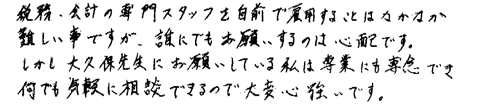 税務、会計の専門スタッフを自前で雇用することはなかなか
難しい事ですが、誰にでもお願いするのは心配です。
しかし大久保先生にお願いしている私は専業にも専念でき
何でも気軽に相談できるので大変心強いです。